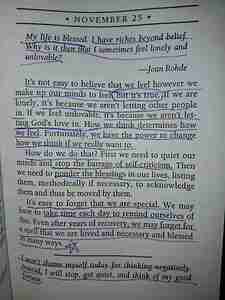 • NOVEMBER 25 •
My life is blessed. I have riches beyond belief.
Why is it then that I sometimes feel lonely and
unlovable?
—Joan Rohde
It's not easy to believe that we feel however we
make up our minds to feel, but it's true. If we are
lonely, it's because we aren't letting other people
in. If we feel unlovable, it's because we aren't let-
ting God's love in. How we think determines how
we feel. Fortunately, we have the power to change
how we think if we really want to.
How do we do that? First we need to quiet our
minds and stop the barrage of self-criticism. Then
we need to ponder the blessings in our lives, listing
them, methodically if necessary, to acknowledge
them and thus be moved by them.
It's easy to forget that we are special. We may
have to take time each day to remind ourselves of
this. Even after years of recovery, we may forget for
a spell that we are loved and necessary and blessed
in many ways.
I won't shame myself today for thinking negatively.
Instead, I will stop, get quiet, and think of my good
fortune.